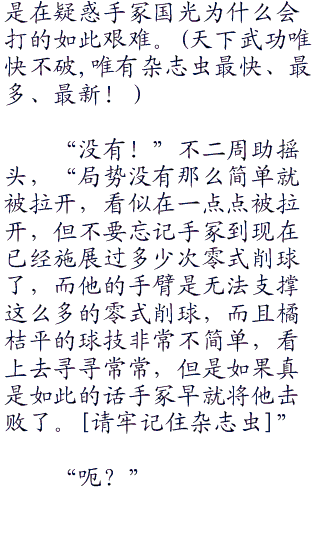 是在疑惑手冢国光为什么会
打的如此艰难。(天下武功唯
快不破,唯有杂志虫最快、最
多、最新！ )
“没有！”不二周助摇
头，“局势没有那么简单就
被拉开，看似在一点点被拉
开，但不要忘记手冢到现在
已经施展过多少次零式削球
了，而他的手臂是无法支撑
这么多的零式削球，而且橘
桔平的球技非常不简单，看
上去寻寻常常，但是如果真
是如此的话手冢早就将他击
败了。[请牢记住杂志虫]”
“呃？”